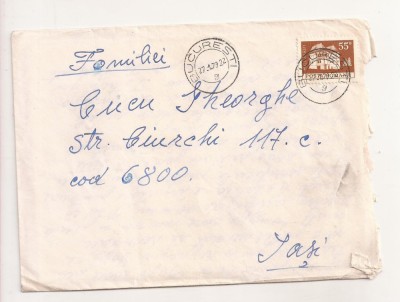 Familiei
BUCUREȘTI
27.5.79.22
55
Cucu Gheorghe
Str. Ciurchi 117. c.
cod 6800.
Iași